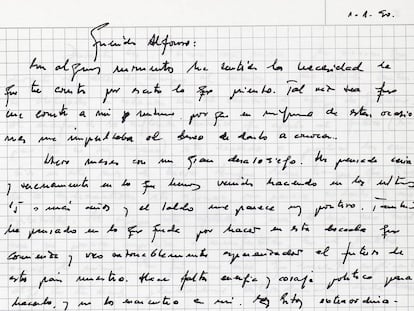 1-1-90.
Querido Alfonso:
En algunos momentos he sentido la necesidad de
que te conste por escrito lo que pienso. Tal vez sea que
me conste a mí mismo, porque en ninguna de estas ocasio
nes me impulsaba el deseo de darlo a conocer.
Llevo meses con un gran desasosiego. He pensado seria
y serenamente en lo que hemos venido haciendo en los últimos
15 o más años y el saldo me parece muy positivo. También
he pensado en lo que queda por hacer en esta década que
comienza y veo razonablemente esperanzador el futuro de
este país nuestro. Hace falta energía y coraje político para
hacerlo, y no los encuentro en mí. Hoy estoy extraordina-